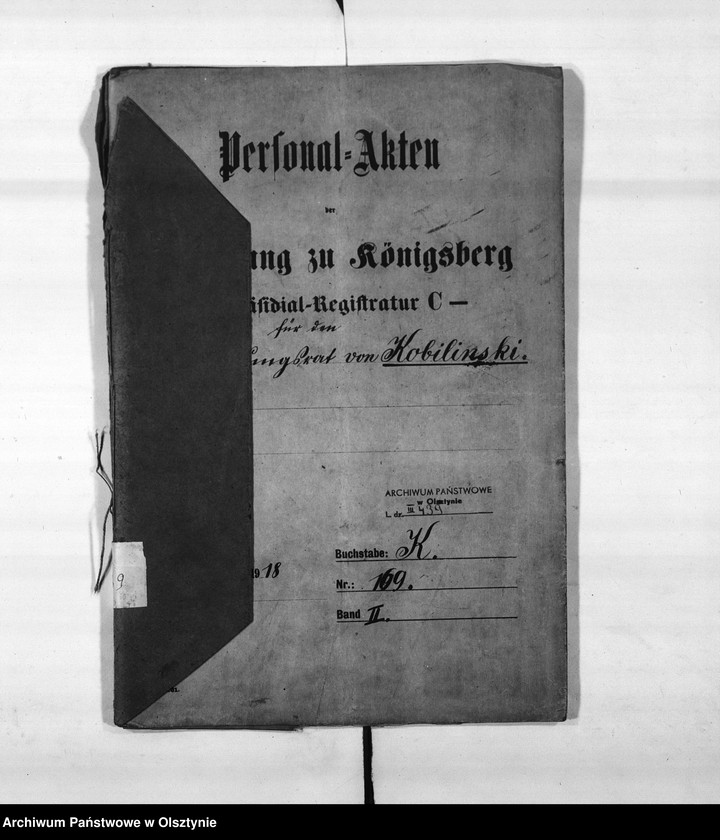 Personal-Akten
der
ung zu Königsberg
äsidial-Registratur C —
für den
ungsrat von Kobilinski.
ARCHIWUM PAŃSTWOWE
w Olsztynie
L. dz. III
Buchstabe: K.
1918
Nr.: 169.
Band II.
9
Archiwum Państwowe w Olsztynie